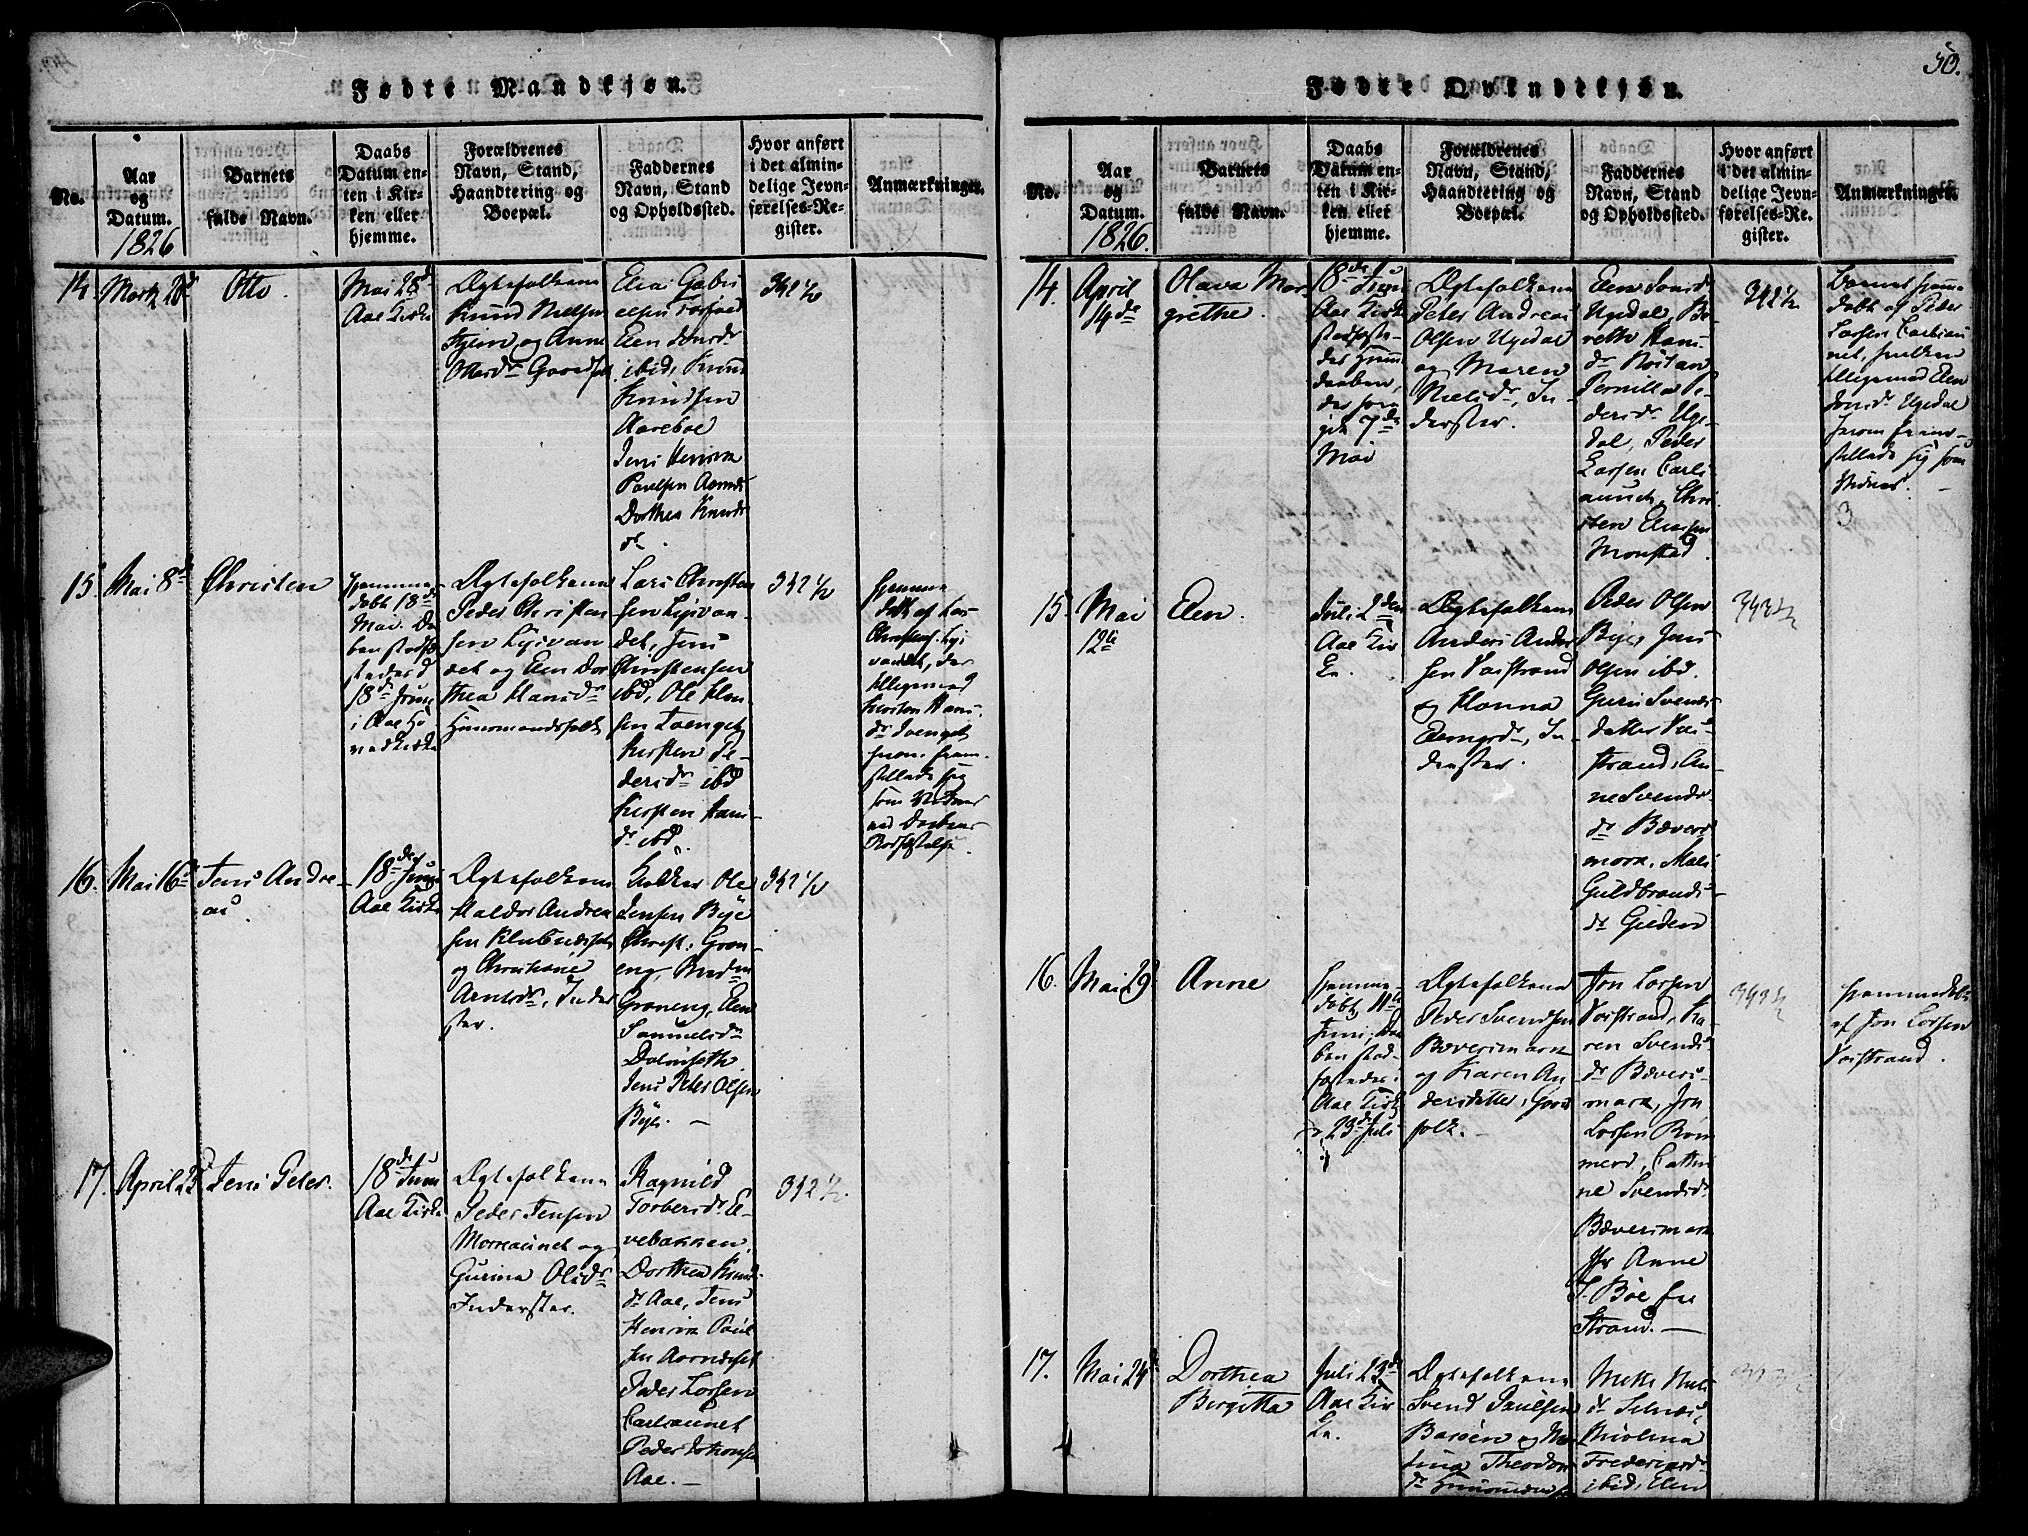 Fødte Mandkjøn.
No.
Aar
og
Datum.
1826
Barnets
fulde Navn.
Daabs
Datum en-
ten i Kir-
ken eller
hjemme.
Forældrenes
Navn, Stand,
Haandtering og
Boepæl.
Faddernes
Navn, Stand
og Opholdssted.
Hvor anført
i det almin-
delige Jevn-
førelses-Re-
gister.
Anmærkninger.
14.
Martz 28d
Otto.
Mai 28d
Aae Kirke
Ægtefolkene
Knud Nielsen
og Anne
Gaardfolk
Knud
Knudsen
Aareboe
Jens Henrik
Paulsen
Dorthea Knuds
dr.
342 1/2
15.
Mai 8de
Christen
hjemme-
døbt 18de
Mai. Daa
ben stadfæ
stedes d
18de Juni
i Aae Ho
vedkirke
Ægtefolkene
Peder Christen
sen Lysvan
det og Elen Dor
thea Hansdr
Huusmandsfolk
Lars Christen
sen Lysvan
det, Jens
Christensen
ibd, Ole Han
sen Tvenget
Kirsten Pe-
dersdr ibd
Kirsten Hans
dr ibd.
342 1/2
hjemme
døbt af Lars
Christens. Lys
vandet, der
tilligemed
Kirsten Hans
dr Tvenget
frem-
stillede sig
som Vidner
ved Daabens
Stadfæstelse.
16.
Mai 16d
Jens Andre-
as.
18de Juni
Aae Kirke
Ægtefolkene
Haldor Andrea
sen
og Christiane
Arntsdr, Inder
ster.
Kokker Ole
Jensen Bÿe
Christ: Grøn-
eng,
Grøneng, Elen
Samuelsdr
Jens Peter Olsen
Bÿe.
342 1/2
17.
April 23d
Jens Peter.
18de Juni
Aae Kirke
Ægtefolkene
Peder Jensen
Morreaunet og
Gurina Olsdr
Inderster.
Ragnild
Torbersdr E-
vebakken,
Dorthea Knuds
dr Aae, Jens
Henrik Paul
sen
Peder Larsen
Carlsaunet
Peder
Aae.
342 1/2.
Fødte Qvindekjøn.
50.
No.
Aar
og
Datum.
1826.
Barnets
fulde Navn.
Daabs
Datum en-
ten i Kir-
ken eller
hjemme.
Forældrenes
Navn, Stand,
Haandtering og
Boepæl.
Faddernes
Navn, Stand
og Opholdssted.
Hvor anført
i det almin-
delige Jevn-
førelses-Re-
gister.
Anmærkninger.
14.
April
14de
Olava Mar-
grethe.
18de Juni
Aae Kirke
stadfæste-
des Hjem
daaben,
der fore
gik 7de
Mai
Ægtefolkene
Peter Andreas
Olsen Ugedal
og Maren
Nielsdr, In-
derster.
Elen
Ugedal, Be-
reth Hans
dr
Pernilla Pe-
dersdr Uge-
dal, Peder
Larsen Carls
aunet, Chri
sten
Monstad.
342 1/2
Barnet hjemme
døbt af Peder
Larsen Carlsau
net, hvilken
tilligemed Elen
Ugedal
frem-
stillede sig som
Vidner.
15.
Mai
12te
Elen.
Juli 2den
Aae Kir
ke.
Ægtefolkene
Anders Ander
sen Vaistrand
og Hanna
In-
derster.
Peder Olsen
Bÿe, Jens
Olsen ibd.
Guru Svends
datter Vai-
strand, An-
ne Svends-
dr Bævers
mark, Mali
Guldbrands
dr
343 1/2
16.
Mai 29
Anne
hjemme-
døbt 11te
Juni, Daa
ben stad-
fæstedes i
Aae Kirke
23de Juli
Ægtefolkene
Peder Svendsen
Bæversmark
og Karen An
dersdatter, Gaard
folk.
Jon Larsen
Vaistrand, Ka-
ren Svends
dr Bævers-
mark, Jon
Larsen
Cathri
ne Svendsdr.
Bæversmark
Anne
Strand.
343 1/2
hjemmedøbt
af Jon Larsen
Vaistrand.
17.
Mai 24d
Dorthea
Birgitta
Juli 23de
Aae Kir
ke.
Ægtefolkene
Svend Paulsen
og
Theodor
dr
Mette Niels
dr Selnæs,
Nicolina
ibid, Elen